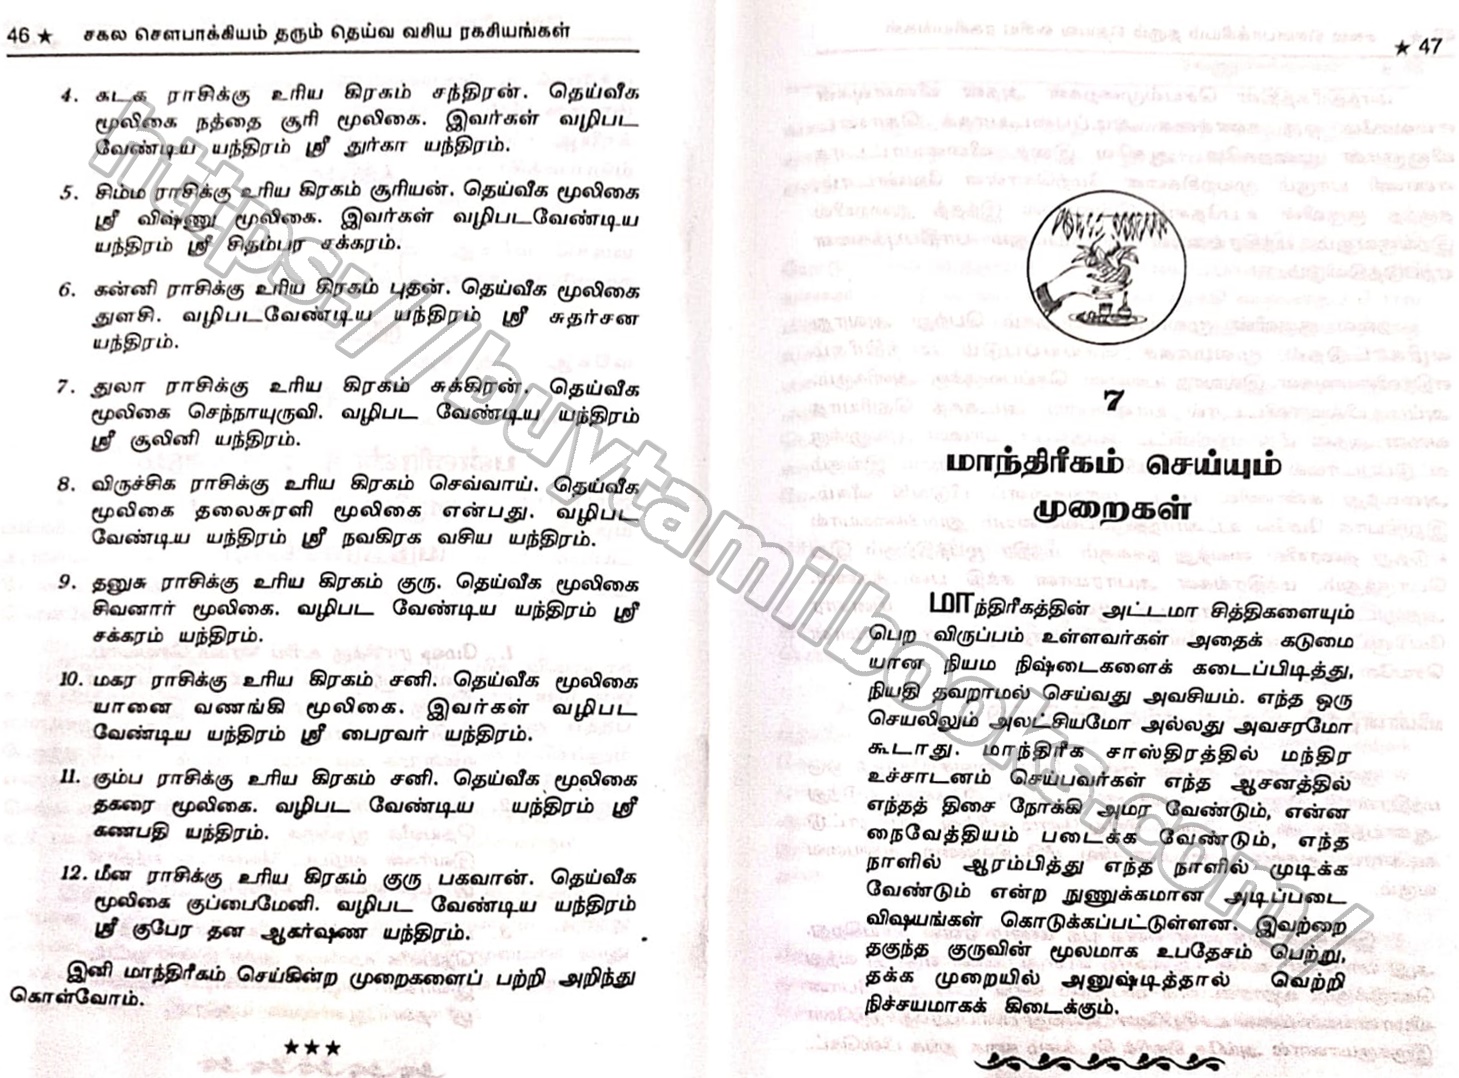 46 ★ சகல சௌபாக்கியம் தரும் தெய்வ வசிய ரகசியங்கள்
4. கடக ராசிக்கு உரிய கிரகம் சந்திரன். தெய்வீக
மூலிகை நத்தை சூரி மூலிகை. இவர்கள் வழிபட
வேண்டிய யந்திரம் ஸ்ரீ துர்கா யந்திரம்.
5. சிம்ம ராசிக்கு உரிய கிரகம் சூரியன். தெய்வீக மூலிகை
ஸ்ரீ விஷ்ணு மூலிகை. இவர்கள் வழிபடவேண்டிய
யந்திரம் ஸ்ரீ சிதம்பர சக்கரம்.
6. கன்னி ராசிக்கு உரிய கிரகம் புதன். தெய்வீக மூலிகை
துளசி. வழிபடவேண்டிய யந்திரம் ஸ்ரீ சுதர்சன
யந்திரம்.
7. துலா ராசிக்கு உரிய கிரகம் சுக்கிரன். தெய்வீக
மூலிகை செந்நாயுருவி. வழிபட வேண்டிய யந்திரம்
ஸ்ரீ சூலினி யந்திரம்.
8. விருச்சிக ராசிக்கு உரிய கிரகம் செவ்வாய். தெய்வீக
மூலிகை தலைசுரளி மூலிகை என்பது. வழிபட
வேண்டிய யந்திரம் ஸ்ரீ நவகிரக வசிய யந்திரம்.
9. தனுசு ராசிக்கு உரிய கிரகம் குரு. தெய்வீக மூலிகை
சிவனார் மூலிகை. வழிபட வேண்டிய யந்திரம் ஸ்ரீ
சக்கரம் யந்திரம்.
10. மகர ராசிக்கு உரிய கிரகம் சனி. தெய்வீக மூலிகை
யானை வணங்கி மூலிகை. இவர்கள் வழிபட
வேண்டிய யந்திரம் ஸ்ரீ பைரவர் யந்திரம்.
11. கும்ப ராசிக்கு உரிய கிரகம் சனி. தெய்வீக மூலிகை
தகரை மூலிகை. வழிபட வேண்டிய யந்திரம் ஸ்ரீ
கணபதி யந்திரம்.
12. மீன ராசிக்கு உரிய கிரகம் குரு பகவான். தெய்வீக
மூலிகை குப்பைமேனி. வழிபட வேண்டிய யந்திரம்
ஸ்ரீ குபேர தன ஆகர்ஷண யந்திரம்.
இனி மாந்திரீகம் செய்கின்ற முறைகளைப் பற்றி அறிந்து
கொள்வோம்.
★★★
★ 47
7
மாந்திரீகம் செய்யும்
முறைகள்
மாந்திரீகத்தின் அட்டமா சித்திகளையும்
பெற விருப்பம் உள்ளவர்கள் அதைக் கடுமை
யான நியம நிஷ்டைகளைக் கடைப்பிடித்து,
நியதி தவறாமல் செய்வது அவசியம். எந்த ஒரு
செயலிலும் அலட்சியமோ அல்லது அவசரமோ
கூடாது. மாந்திரீக சாஸ்திரத்தில் மந்திர
உச்சாடனம் செய்பவர்கள் எந்த ஆசனத்தில்
எந்தத் திசை நோக்கி அமர வேண்டும், என்ன
நைவேத்தியம் படைக்க வேண்டும், எந்த
நாளில் ஆரம்பித்து எந்த நாளில் முடிக்க
வேண்டும் என்ற நுணுக்கமான அடிப்படை
விஷயங்கள் கொடுக்கப்பட்டுள்ளன. இவற்றை
தகுந்த குருவின் மூலமாக உபதேசம் பெற்று,
தக்க முறையில் அனுஷ்டித்தால் வெற்றி
நிச்சயமாகக் கிடைக்கும்.
https://buytamilbooks.com/